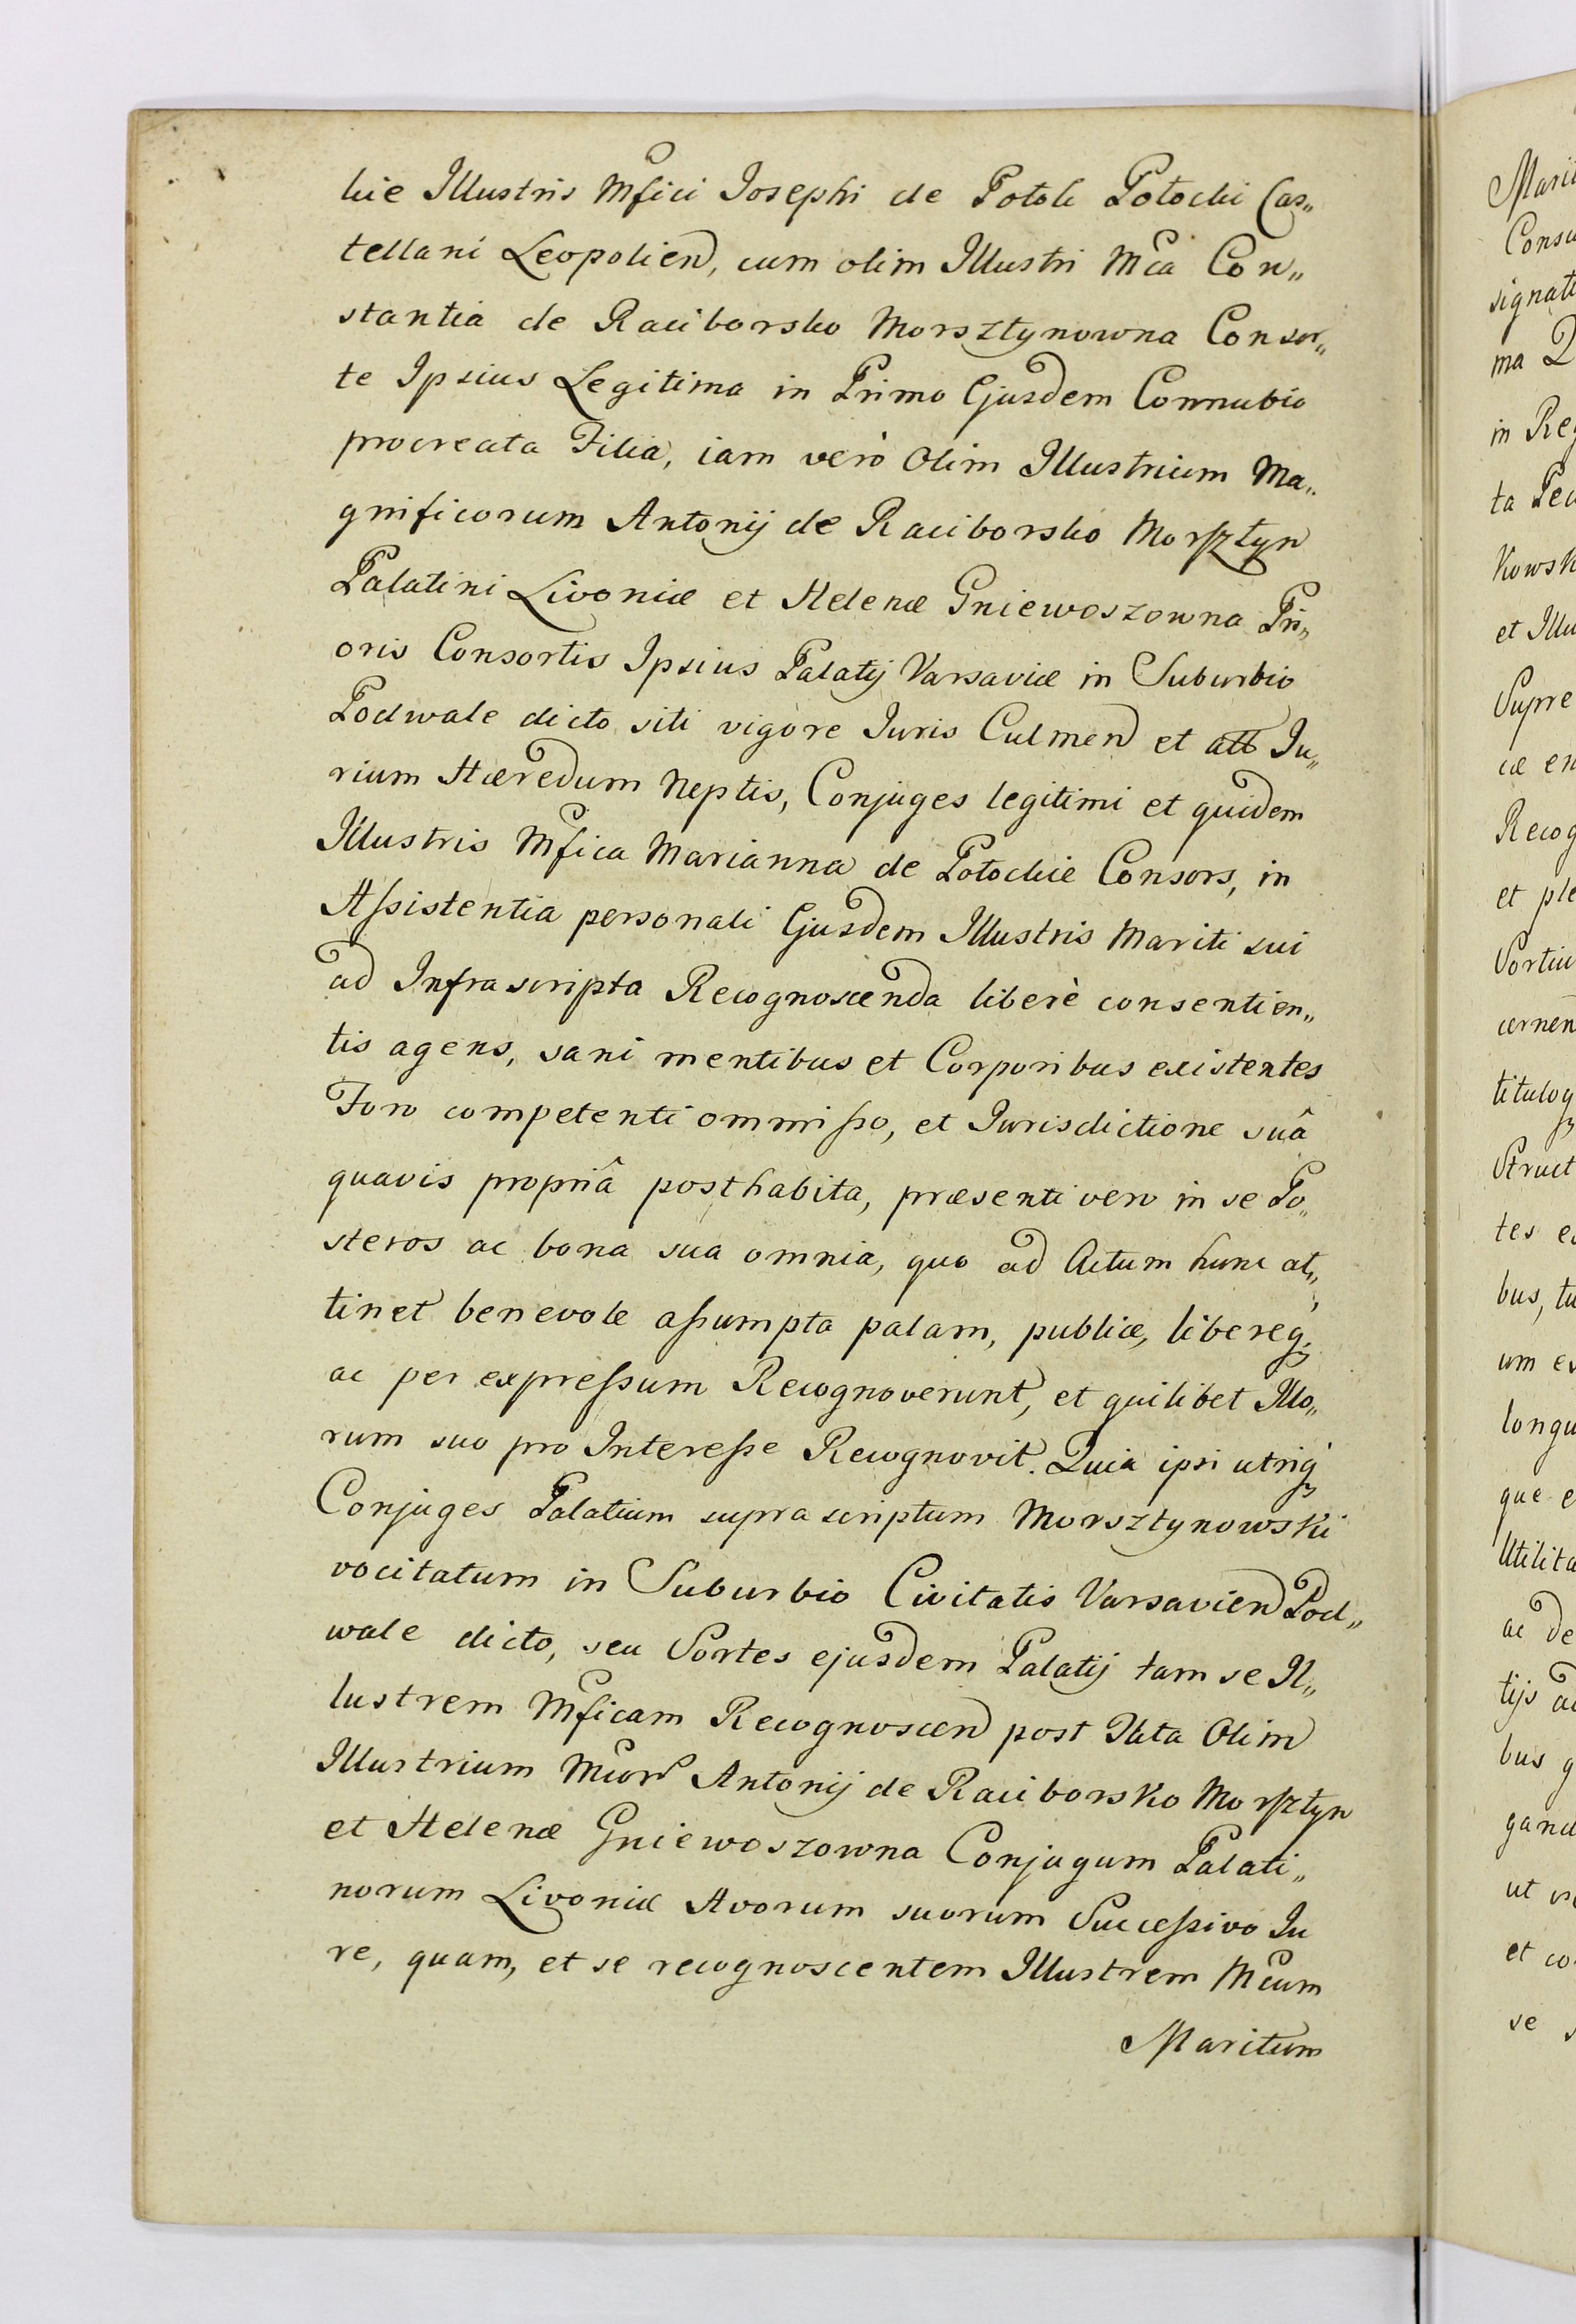 kie Illustris Mfici Josephi de Potok Potocki Cas„
tellani Leopolien, cum olim Illustri Mca Con„
stantia de Raciborsko Morsztynowna Consor„
te Ipsius Legitima in Primo Ejusdem Connubio
procreata Filia, iam verò Olim Illustrium Ma„
gnificorum Antonij de Raciborsko Morsztyn
Palatini Livoniæ et Helenæ Gniewoszowna Pri„
oris Consortis Ipsius Palatij Varsaviæ in Suburbio
Podwale dicto siti vigore Juris Culmen et att Ju„
rium Hæredum Neptis, Conjuges legitimi et quidem
Illustris Mfica Marianna de Potockie Consors, in
Assistentia personali Ejusdem Illustris Mariti sui
ad Infrascripta Recognoscenda liberè consentien„
tis agens, sani mentibus et Corporibus existentes
Foro competenti ommisso, et Jurisdictione suâ
quavis propriâ posthabita, præsenti vero in se Po„
steros ac bona sua omnia, quo ad Actum hunc at„
tinet benevole assumpta palam, publicæ, libereq;
ac per expressum Recognoverunt, et quilibet Illo„
rum suo pro Interesse Recognovit. Quia ipsi utriq
Conjuges Palatium suprascriptum Morsztynowski
vocitatum in Suburbio Civitatis Varsavien Pod„
wale dicto, seu Sortes ejusdem Palatij tam se Il„
lustrem Mficam Recognoscen post Fata Olim
Illustrium Mcor Antonij de Raciborsko Morsztyn
et Helenæ Gniewoszowna Conjugum Palati„
norum Livoniæ Avorum suorum Successivo Ju
re, quam, et se recognoscentem Illustrem Mcum
Maritum
Consu
signat
in Reg
kowsk
et Illu
Supre
Recog
et ple
cernen
Struct
longu
que e
Utilita
ac de